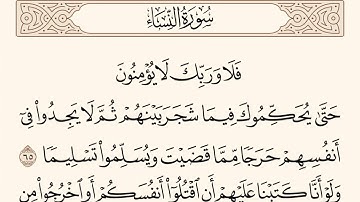 سُورَةُ النِّسَاءِ
فَلَا وَرَبِّكَ لَا يُؤْمِنُونَ
حَتَّىٰ يُحَكِّمُوكَ فِيمَا شَجَرَ بَيْنَهُمْ ثُمَّ لَا يَجِدُوا۟ فِىٓ
أَنفُسِهِمْ حَرَجًا مِّمَّا قَضَيْتَ وَيُسَلِّمُوا۟ تَسْلِيمًا ٦٥
وَلَوْ أَنَّا كَتَبْنَا عَلَيْهِمْ أَنِ ٱقْتُلُوٓا۟ أَنفُسَكُمْ أَوِ ٱخْرُجُوا۟ مِن